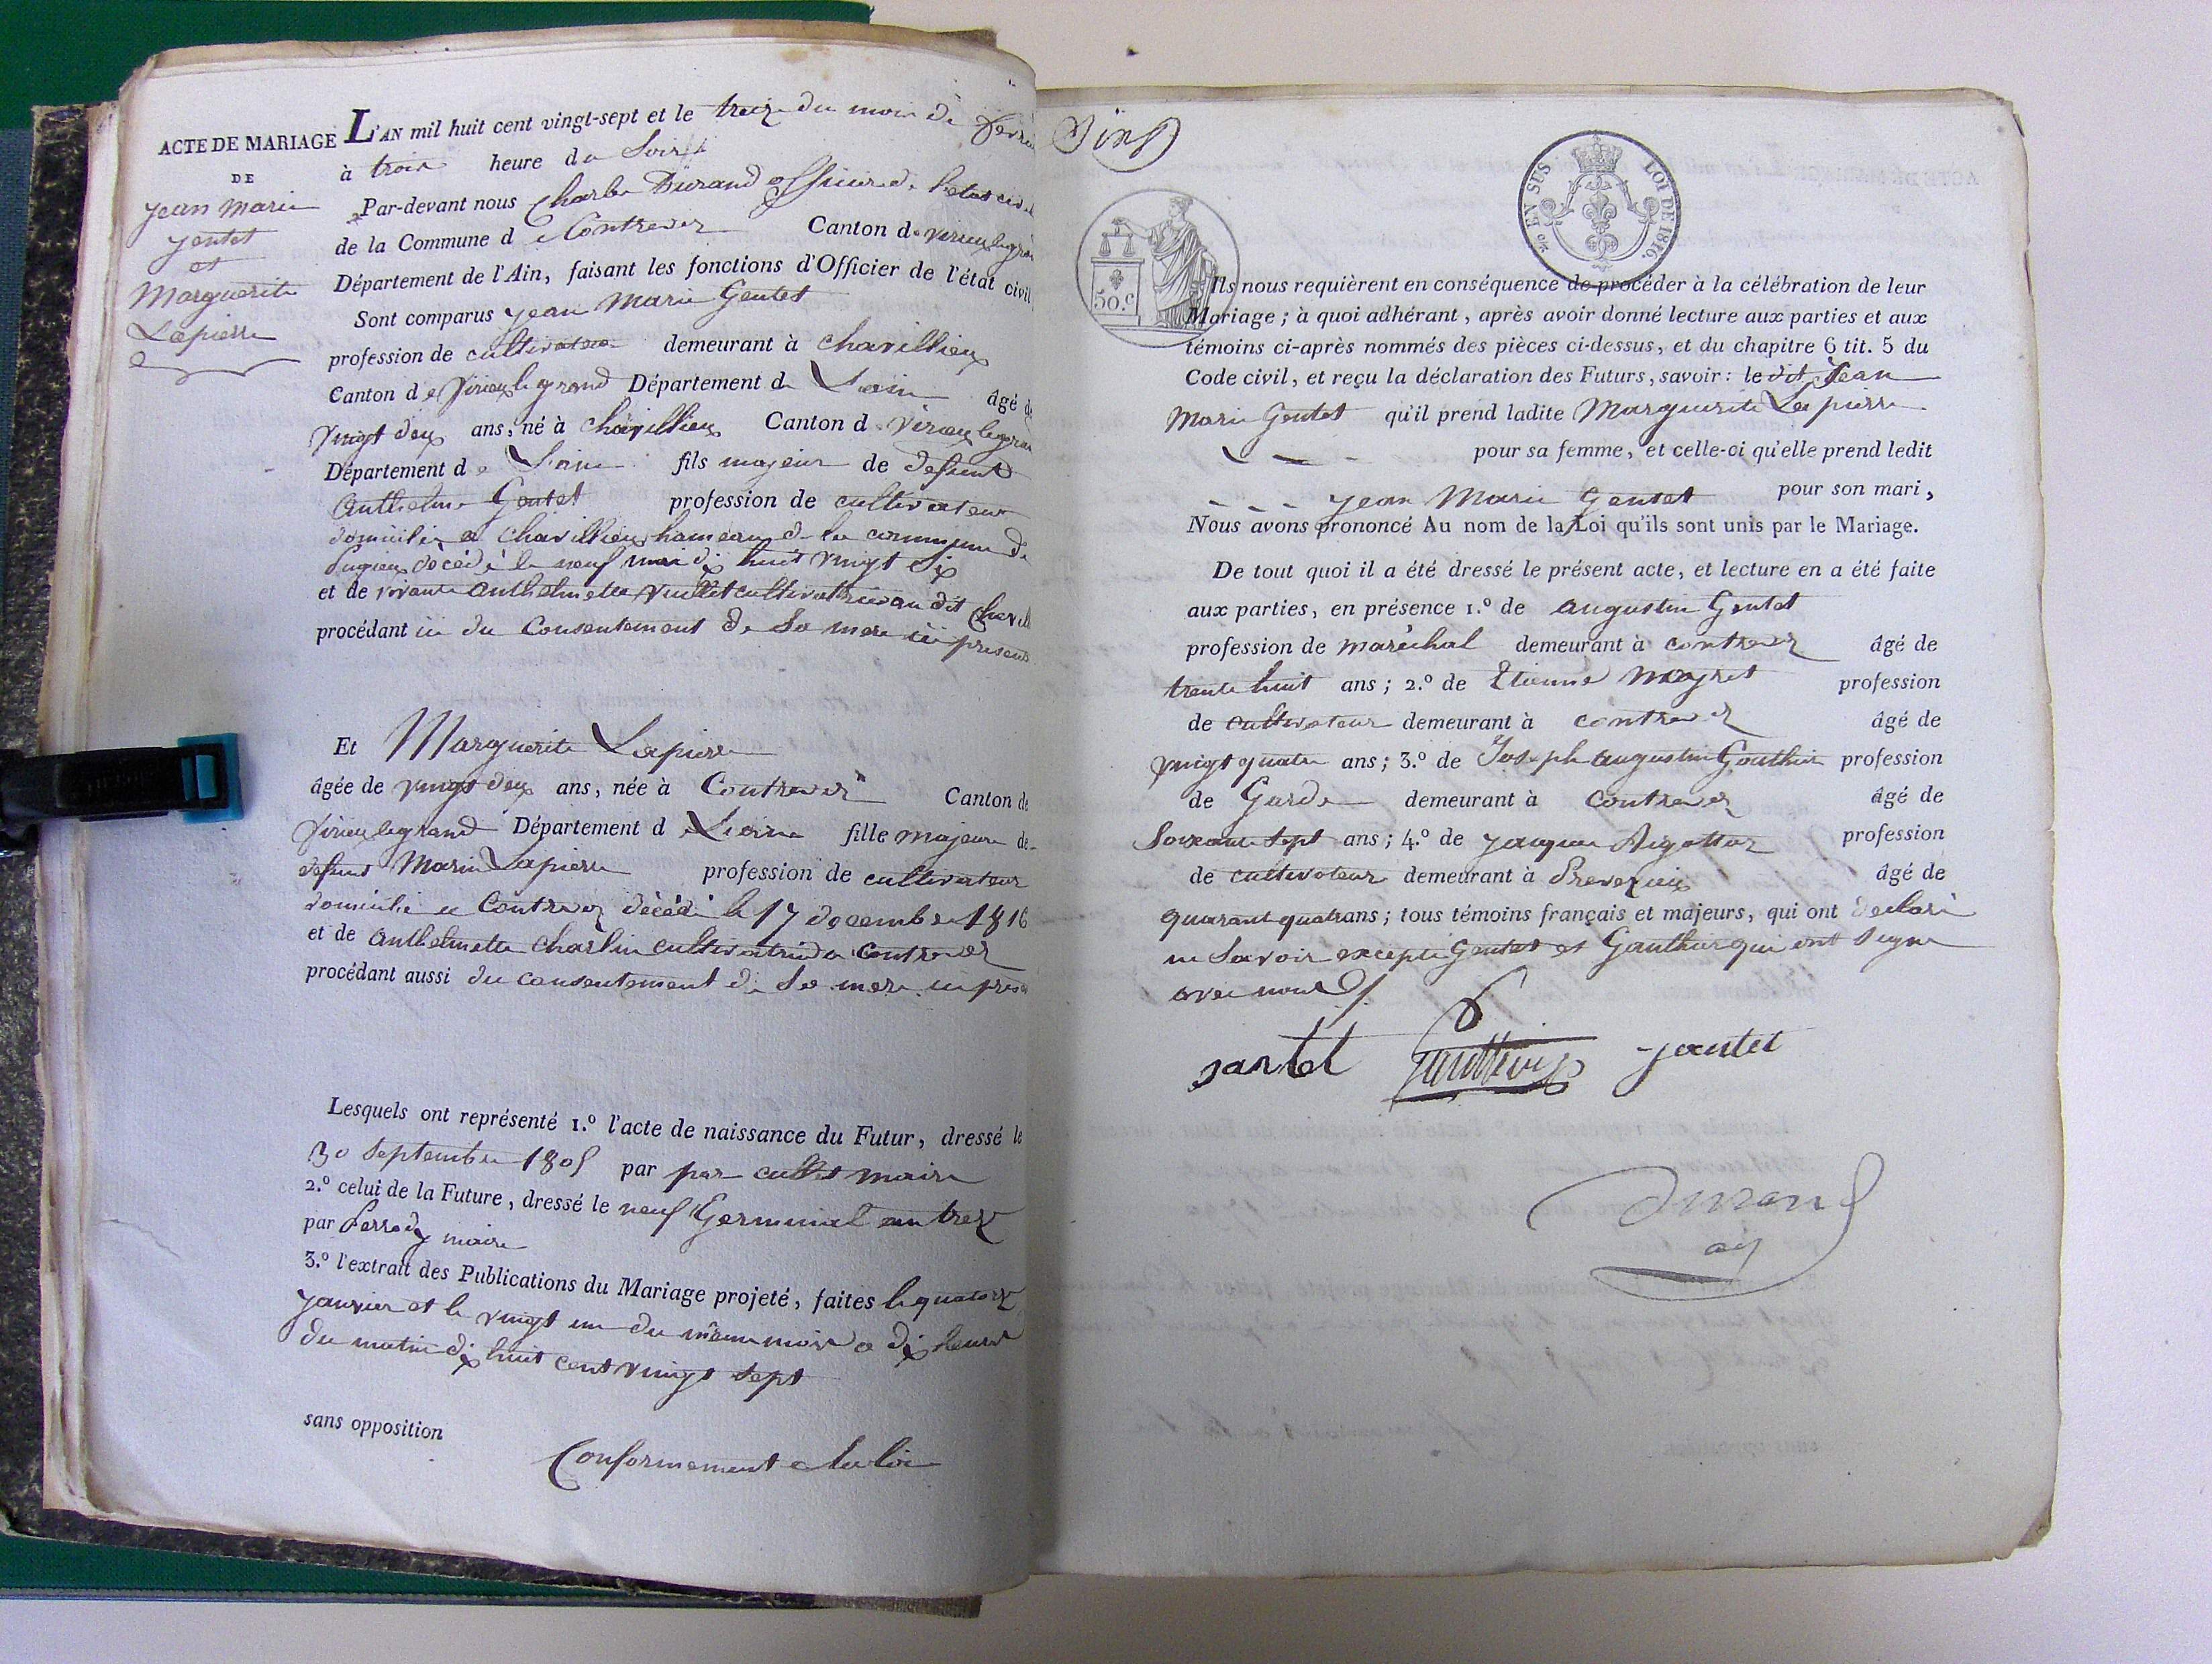 ACTE DE MARIAGE
DE
Jean Marie
Jentet
et
Marguerite
Lapierre
L'AN mil huit cent vingt-sept et le treize du mois de
à trois heure du Soir
Par-devant nous Charles Durand officier de l'etat civil
de la Commune de Contrevoz Canton de virieu le gran
Département de l'Ain, faisant les fonctions d'Officier de l'état civil
Sont comparus Jean Marie Gentet
profession de cultivateur demeurant à Chavillieu
Canton de Virieu le grand Département de Lain âgé de
vingt deux ans, né à Chavillieu Canton de Virieu le gran
Département de Lain fils majeur de defunt
Anthelme Gentet profession de cultivateur
domicilié a Chavillieu hameau de la commune de
Pugieu décédé le neuf mai dix huit vingt six
et de vivante anthelmette vuillet cultivatrice au dit Chavill
procédant ici du Consentement de Sa mere ici presente
Et Marguerite Lapierre
âgée de vingt deux ans, née à Contrevoz Canton de
Virieu le grand Département de Lain fille majeure de
defunt Marin Lapierre profession de cultivateur
domicilié a Contrevoz décédé le 17 decembre 1816
et de anthelmette Charlin cultivatrice a Contrevoz
procédant aussi du consentement de Sa mere ici presen
Lesquels ont représenté 1.º l'acte de naissance du Futur, dressé le
30 Septembre 1805 par par cullet maire
2.º celui de la Future, dressé le neuf Germinal an treze
par Perrody maire
3.º l'extrait des Publications du Mariage projeté, faites le quatorze
Janvier et le vingt un du meme mois a dix heures
du matin dix huit cent vingt Sept
sans opposition
Conformement a la loi
Ils nous requièrent en conséquence de procéder à la célébration de leur
LOI DE 1816.
50.c
Mariage ; à quoi adhérant, après avoir donné lecture aux parties et aux
témoins ci-après nommés des pièces ci-dessus, et du chapitre 6 tit. 5 du
Code civil, et reçu la déclaration des Futurs, savoir : le dit Jean
Marie Gentet qu'il prend ladite Marguerite Lapierre
pour sa femme, et celle-ci qu'elle prend ledit
Jean Marie Gentet pour son mari,
Nous avons prononcé Au nom de la Loi qu'ils sont unis par le Mariage.
De tout quoi il a été dressé le présent acte, et lecture en a été faite
aux parties, en présence 1.º de Augustin Gentet
profession de maréchal demeurant à contrevoz âgé de
trente huit ans ; 2.º de Etienne Meyret profession
de cultivateur demeurant à contrevoz âgé de
vingt quatre ans ; 3.º de Joseph Augustin Gouthier profession
de Garde demeurant à Contrevoz âgé de
Soixante Sept ans ; 4.º de Jacques Rigottaz profession
de cultivateur demeurant à Preveyzieu âgé de
quarant quatr ans ; tous témoins français et majeurs, qui ont declaré
ne Savoir excepté Gentet et Gauthier qui ont Signe
avec nous
jantet Gauthier jantet
Durand
adj